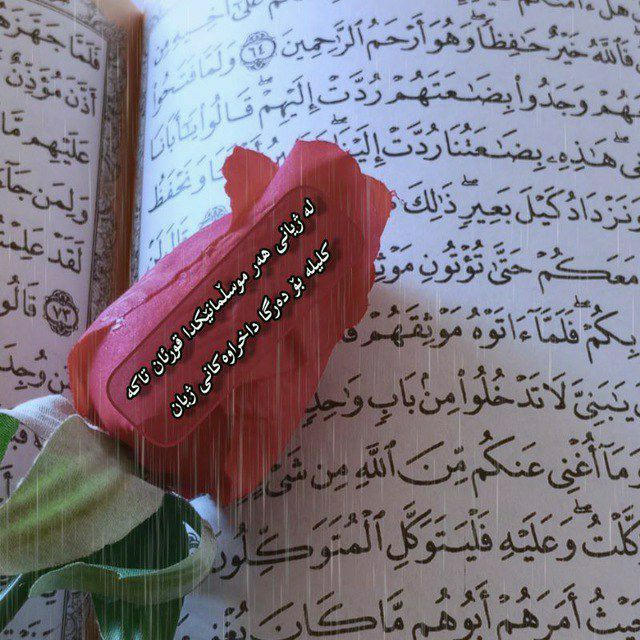 لە ژیانی هەر موسڵمانێکدا قورئان تاکە
کلیلە بۆ دەرگا داخراوەکانی ژیان
فَٱللَّهُ خَيْرٌ حَٰفِظًا ۖ وَهُوَ أَرْحَمُ ٱلرَّٰحِمِينَ ٦٤ وَلَمَّا فَتَحُوا۟
وَجَدُوا۟ بِضَٰعَتَهُمْ رُدَّتْ إِلَيْهِمْ ۖ قَالُوا۟ يَٰٓأَبَانَا
هَٰذِهِۦ بِضَٰعَتُنَا رُدَّتْ إِلَيْنَا ۖ وَنَحْفَظُ
وَنَزْدَادُ كَيْلَ بَعِيرٍ ۖ ذَٰلِكَ قَالَ لَنْ
مَعَكُمْ حَتَّىٰ تُؤْتُونِ
بِكُمْ ۖ فَلَمَّآ ءَاتَوْهُ مَوْثِقَهُمْ
يَٰبَنِىَّ لَا تَدْخُلُوا۟ مِنۢ بَابٍ وَٰحِدٍ
وَمَآ أُغْنِى عَنكُم مِّنَ ٱللَّهِ مِن شَىْءٍ
وَعَلَيْهِ فَلْيَتَوَكَّلِ ٱلْمُتَوَكِّلُونَ
أَمَرَهُمْ أَبُوهُم مَّا كَانَ
فَلَمَّا
أَذَّنَ مُؤَذِّنٌ
عَلَيْهِم مَّا
وَلِمَن جَآءَ
لَقَدْ
٧٣ قَالُوا۟